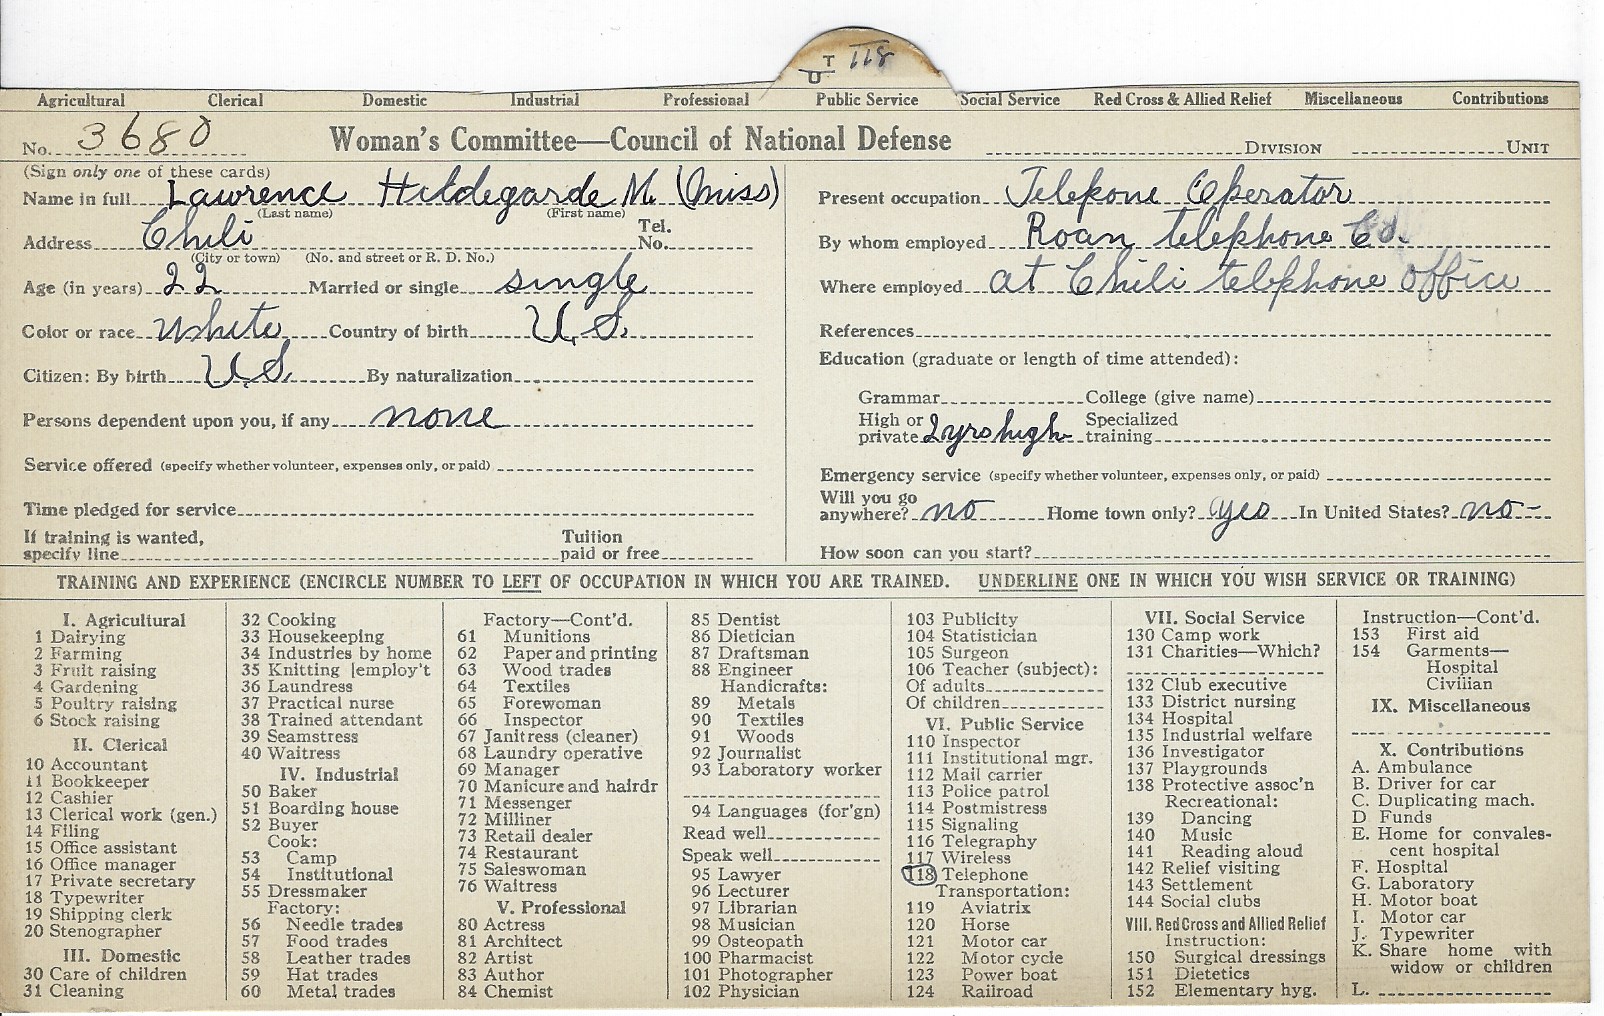 T 118
U
Agricultural Clerical Domestic Industrial Professional Public Service Social Service Red Cross & Allied Relief Miscellaneous Contributions
No. 3680 Woman's Committee—Council of National Defense DIVISION UNIT
(Sign only one of these cards)
Name in full Lawrence Hildegarde M. (Miss)
(Last name) (First name)
Address Chili Tel. No.
(City or town) (No. and street or R. D. No.)
Age (in years) 22 Married or single single
Color or race white Country of birth U.S.
Citizen: By birth U.S. By naturalization
Persons dependent upon you, if any none
Service offered (specify whether volunteer, expenses only, or paid)
Time pledged for service
If training is wanted, specify line Tuition paid or free
Present occupation Telepone Operator
By whom employed Roan telephone Co.
Where employed at Chili telephone office
References
Education (graduate or length of time attended):
Grammar College (give name)
High or private 2 yrs high Specialized training
Emergency service (specify whether volunteer, expenses only, or paid)
Will you go anywhere? no Home town only? yes In United States? no-
How soon can you start?
TRAINING AND EXPERIENCE (ENCIRCLE NUMBER TO LEFT OF OCCUPATION IN WHICH YOU ARE TRAINED. UNDERLINE ONE IN WHICH YOU WISH SERVICE OR TRAINING)
I. Agricultural
1 Dairying
2 Farming
3 Fruit raising
4 Gardening
5 Poultry raising
6 Stock raising
II. Clerical
10 Accountant
11 Bookkeeper
12 Cashier
13 Clerical work (gen.)
14 Filing
15 Office assistant
16 Office manager
17 Private secretary
18 Typewriter
19 Shipping clerk
20 Stenographer
III. Domestic
30 Care of children
31 Cleaning
32 Cooking
33 Housekeeping
34 Industries by home
35 Knitting [employ't
36 Laundress
37 Practical nurse
38 Trained attendant
39 Seamstress
40 Waitress
IV. Industrial
50 Baker
51 Boarding house
52 Buyer
Cook:
53 Camp
54 Institutional
55 Dressmaker
Factory:
56 Needle trades
57 Food trades
58 Leather trades
59 Hat trades
60 Metal trades
Factory—Cont'd.
61 Munitions
62 Paper and printing
63 Wood trades
64 Textiles
65 Forewoman
66 Inspector
67 Janitress (cleaner)
68 Laundry operative
69 Manager
70 Manicure and hairdr
71 Messenger
72 Milliner
73 Retail dealer
74 Restaurant
75 Saleswoman
76 Waitress
V. Professional
80 Actress
81 Architect
82 Artist
83 Author
84 Chemist
85 Dentist
86 Dietician
87 Draftsman
88 Engineer
Handicrafts:
89 Metals
90 Textiles
91 Woods
92 Journalist
93 Laboratory worker
94 Languages (for'gn)
Read well
Speak well
95 Lawyer
96 Lecturer
97 Librarian
98 Musician
99 Osteopath
100 Pharmacist
101 Photographer
102 Physician
103 Publicity
104 Statistician
105 Surgeon
106 Teacher (subject):
Of adults
Of children
VI. Public Service
110 Inspector
111 Institutional mgr.
112 Mail carrier
113 Police patrol
114 Postmistress
115 Signaling
116 Telegraphy
117 Wireless
118 Telephone
Transportation:
119 Aviatrix
120 Horse
121 Motor car
122 Motor cycle
123 Power boat
124 Railroad
VII. Social Service
130 Camp work
131 Charities—Which?
132 Club executive
133 District nursing
134 Hospital
135 Industrial welfare
136 Investigator
137 Playgrounds
138 Protective assoc'n
Recreational:
139 Dancing
140 Music
141 Reading aloud
142 Relief visiting
143 Settlement
144 Social clubs
VIII. Red Cross and Allied Relief
Instruction:
150 Surgical dressings
151 Dietetics
152 Elementary hyg.
Instruction—Cont'd.
153 First aid
154 Garments—
Hospital
Civilian
IX. Miscellaneous
X. Contributions
A. Ambulance
B. Driver for car
C. Duplicating mach.
D Funds
E. Home for convales-
cent hospital
F. Hospital
G. Laboratory
H. Motor boat
I. Motor car
J. Typewriter
K. Share home with
widow or children
L.